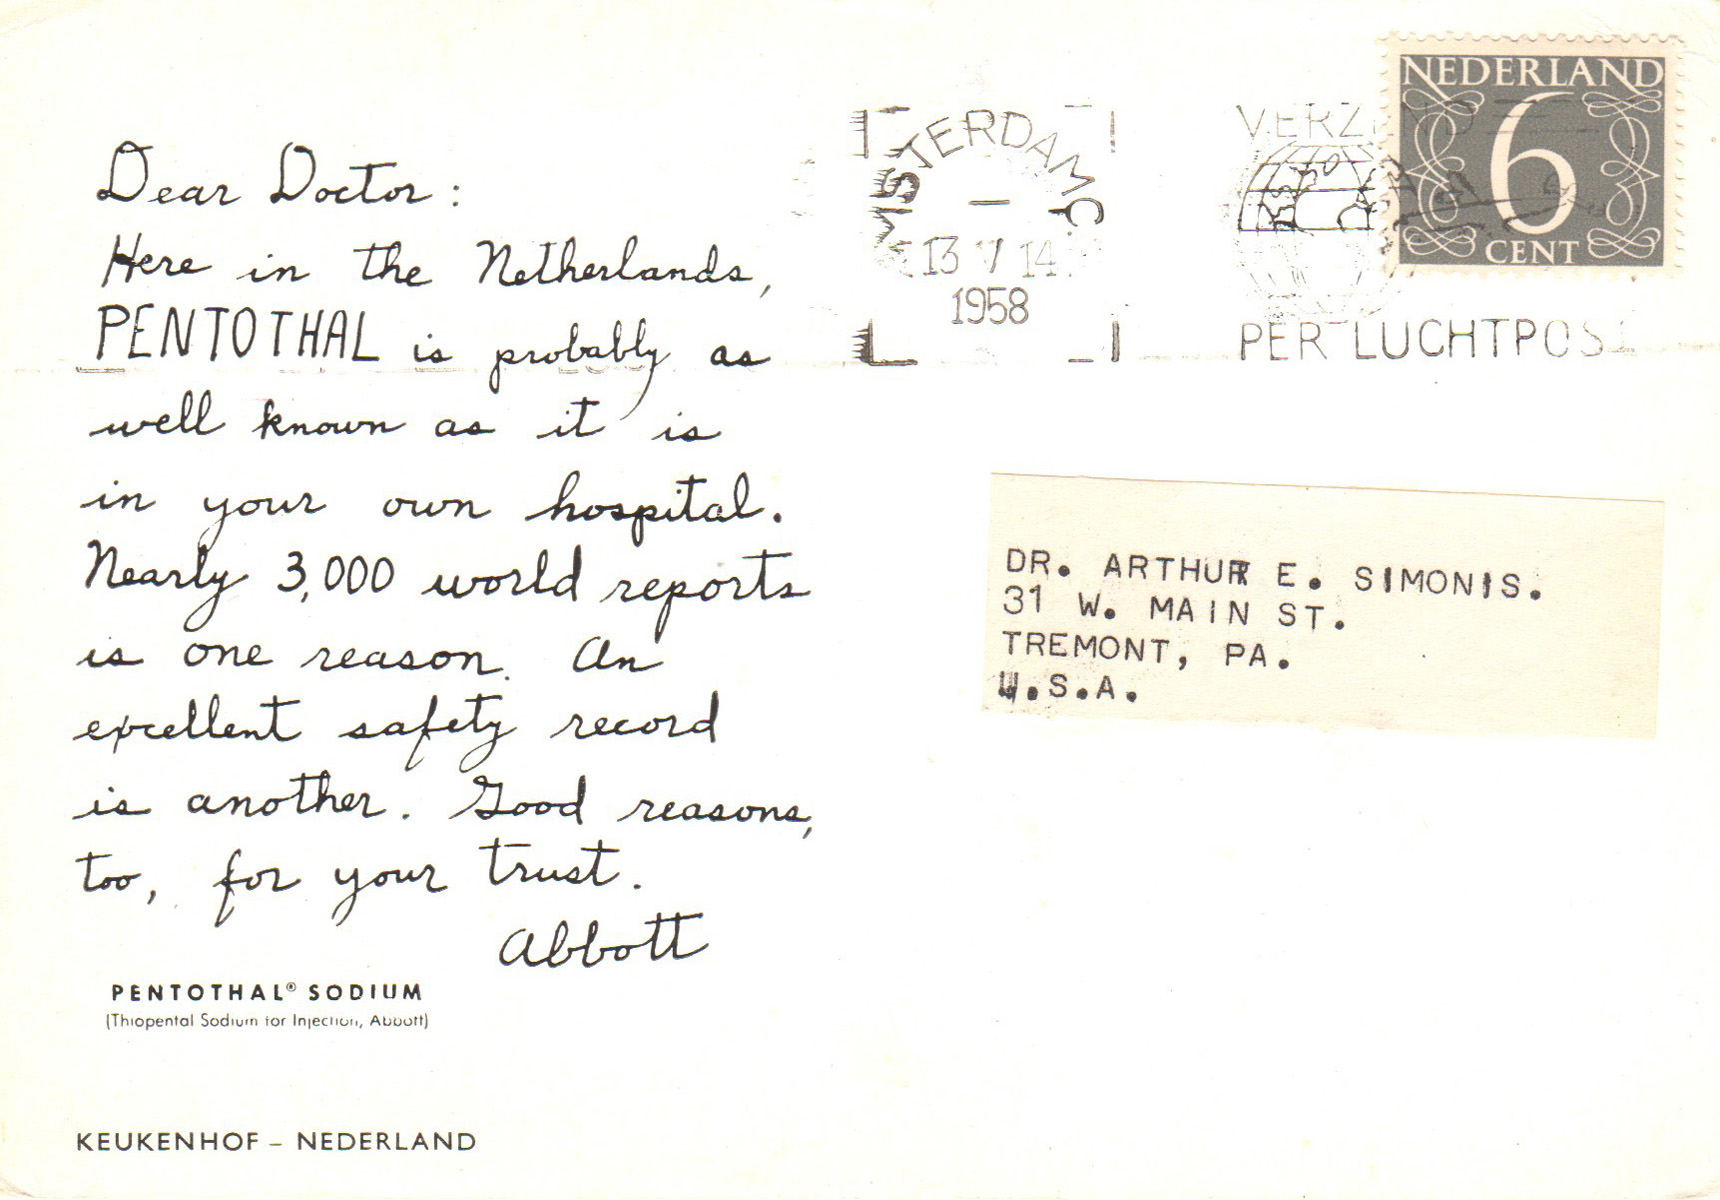 Dear Doctor:
Here in the Netherlands,
PENTOTHAL is probably as
well known as it is
in your own hospital.
Nearly 3,000 world reports
is one reason. An
excellent safety record
is another. Good reasons,
too, for your trust.
Abbott
PENTOTHAL® SODIUM
(Thiopental Sodium for Injection, Abbott)
KEUKENHOF – NEDERLAND
MSTERDAM C
13 V 14
1958
PER LUCHTPOST
NEDERLAND
6
CENT
DR. ARTHUR E. SIMONIS.
31 W. MAIN ST.
TREMONT, PA.
U.S.A.